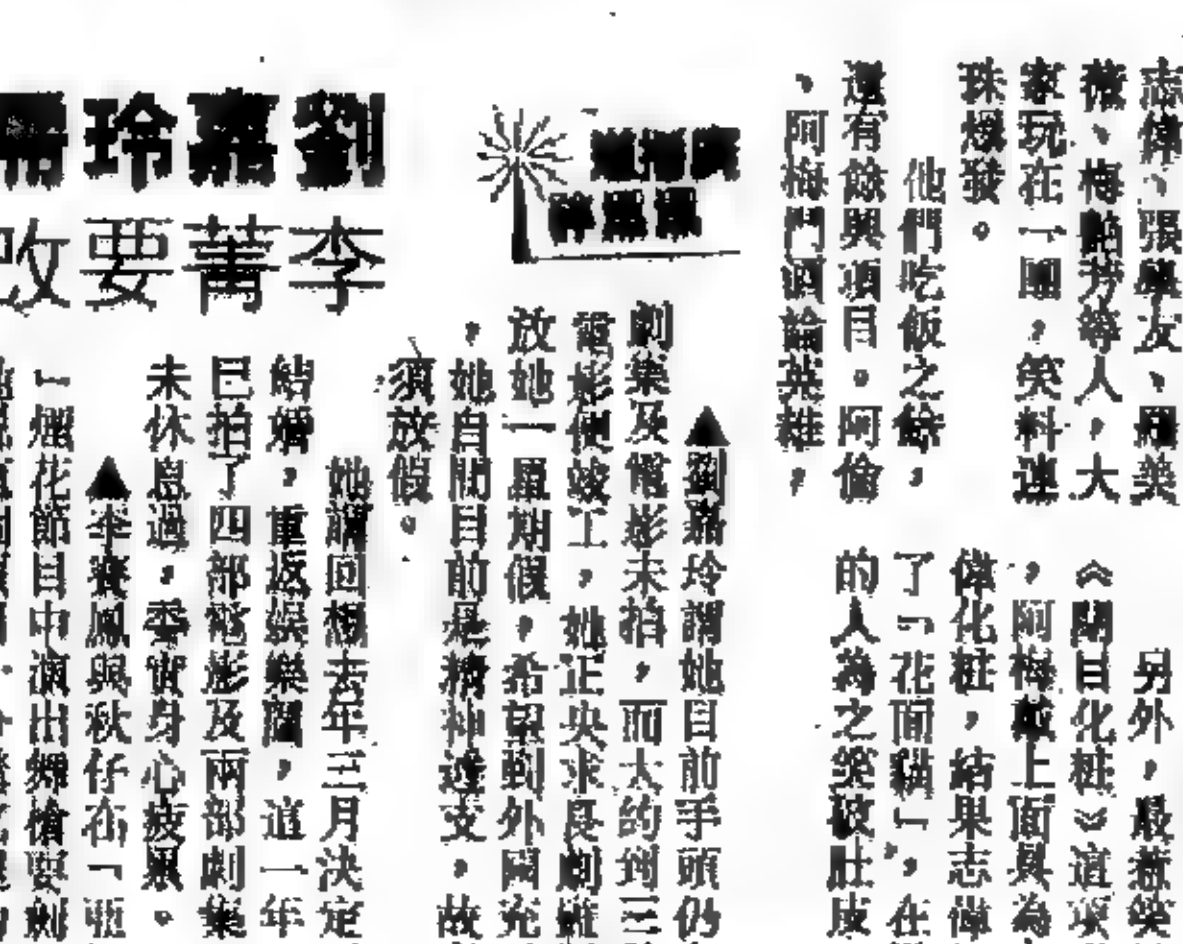 志偉、張學友、羅美
薇、梅艷芳等人,大
家玩在一團,笑料連
珠爆發。
他們吃飯之餘,
還有餘興項目。阿倫
、阿梅鬥酒論英雄,
另外,最惹笑
《閉目化粧》這項
,阿梅戴上面具為
偉化粧,結果志偉
了「花面貓」,在
的人為之笑破肚皮
劉嘉玲
李菁要改
▲劉嘉玲謂她目前手頭仍
劇集及電影未拍,而大約到三
電影便竣工,她正央求良劇權
放她一星期假,希望到外國充
,她自問目前是精神透支,故
須放假。
她謂回想去年三月決定
結婚,重返娛樂圈,這一年
已拍了四部電影及兩部劇集
未休息過,委實身心疲累。
▲李賽鳳與秋仔在「亞
」煙花節目中演出舞槍耍劍